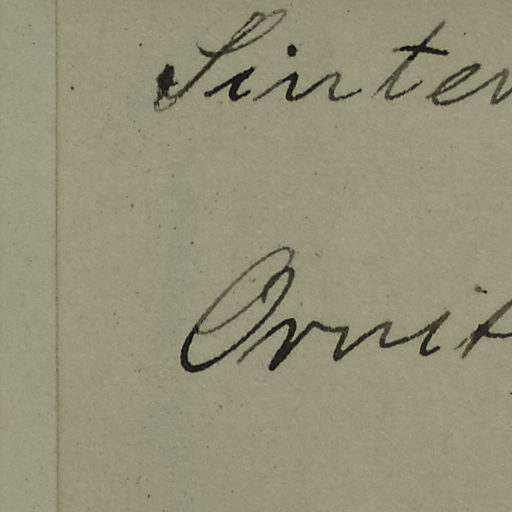 Sinter
Ornit